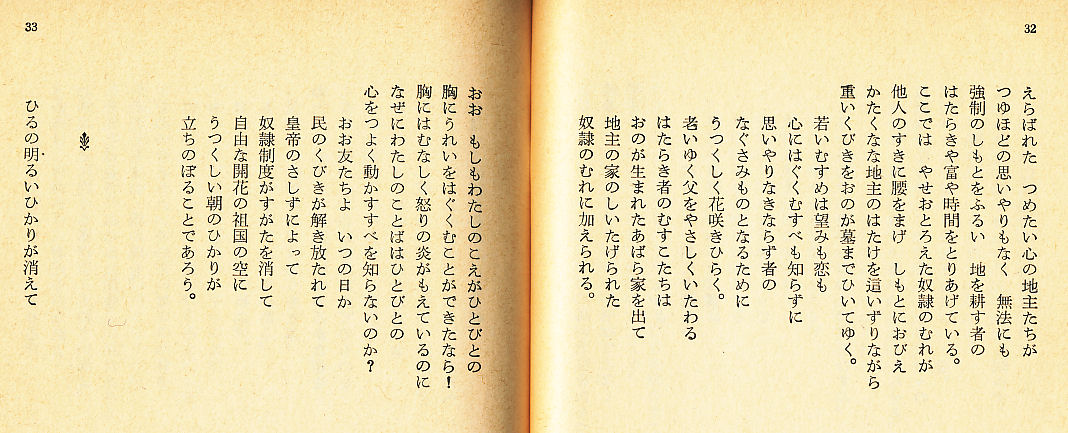 32
えらばれた　つめたい心の地主たちが
つゆほどの思いやりもなく　無法にも
強制のしもとをふるい　地を耕す者の
はたらきや富や時間をとりあげている。
ここでは　やせおとろえた奴隷のむれが
他人のすきに腰をまげ　しもとにおびえ
かたくなな地主のはたけを這いずりながら
重いくびきをおのが墓までひいてゆく。
若いむすめは望みも恋も
心にはぐくむすべも知らずに
思いやりなきならず者の
なぐさみものとなるために
うつくしく花咲きひらく。
老いゆく父をやさしくいたわる
はたらき者のむすこたちは
おのが生まれたあばら家を出て
地主の家のしいたげられた
奴隷のむれに加えられる。
おお　もしもわたしのこえがひとびとの
胸にうれいをはぐくむことができたなら！
胸にはむなしく怒りの炎がもえているのに
なぜにわたしのことばはひとびとの
心をつよく動かすすべを知らないのか？
おお友たちよ　いつの日か
民のくびきが解き放たれて
皇帝のさしずによって
奴隷制度がすがたを消して
自由な開花の祖国の空に
うつくしい朝のひかりが
立ちのぼることであろう。
ひるの明るいひかりが消えて
33